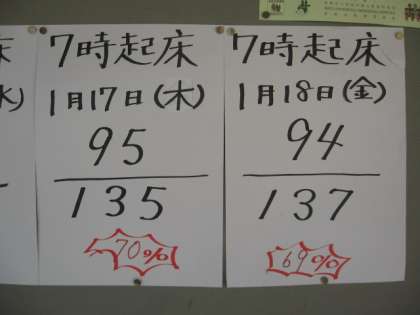 7時起床
1月17日(木)
95
135
70%
7時起床
1月18日(金)
94
137
69%